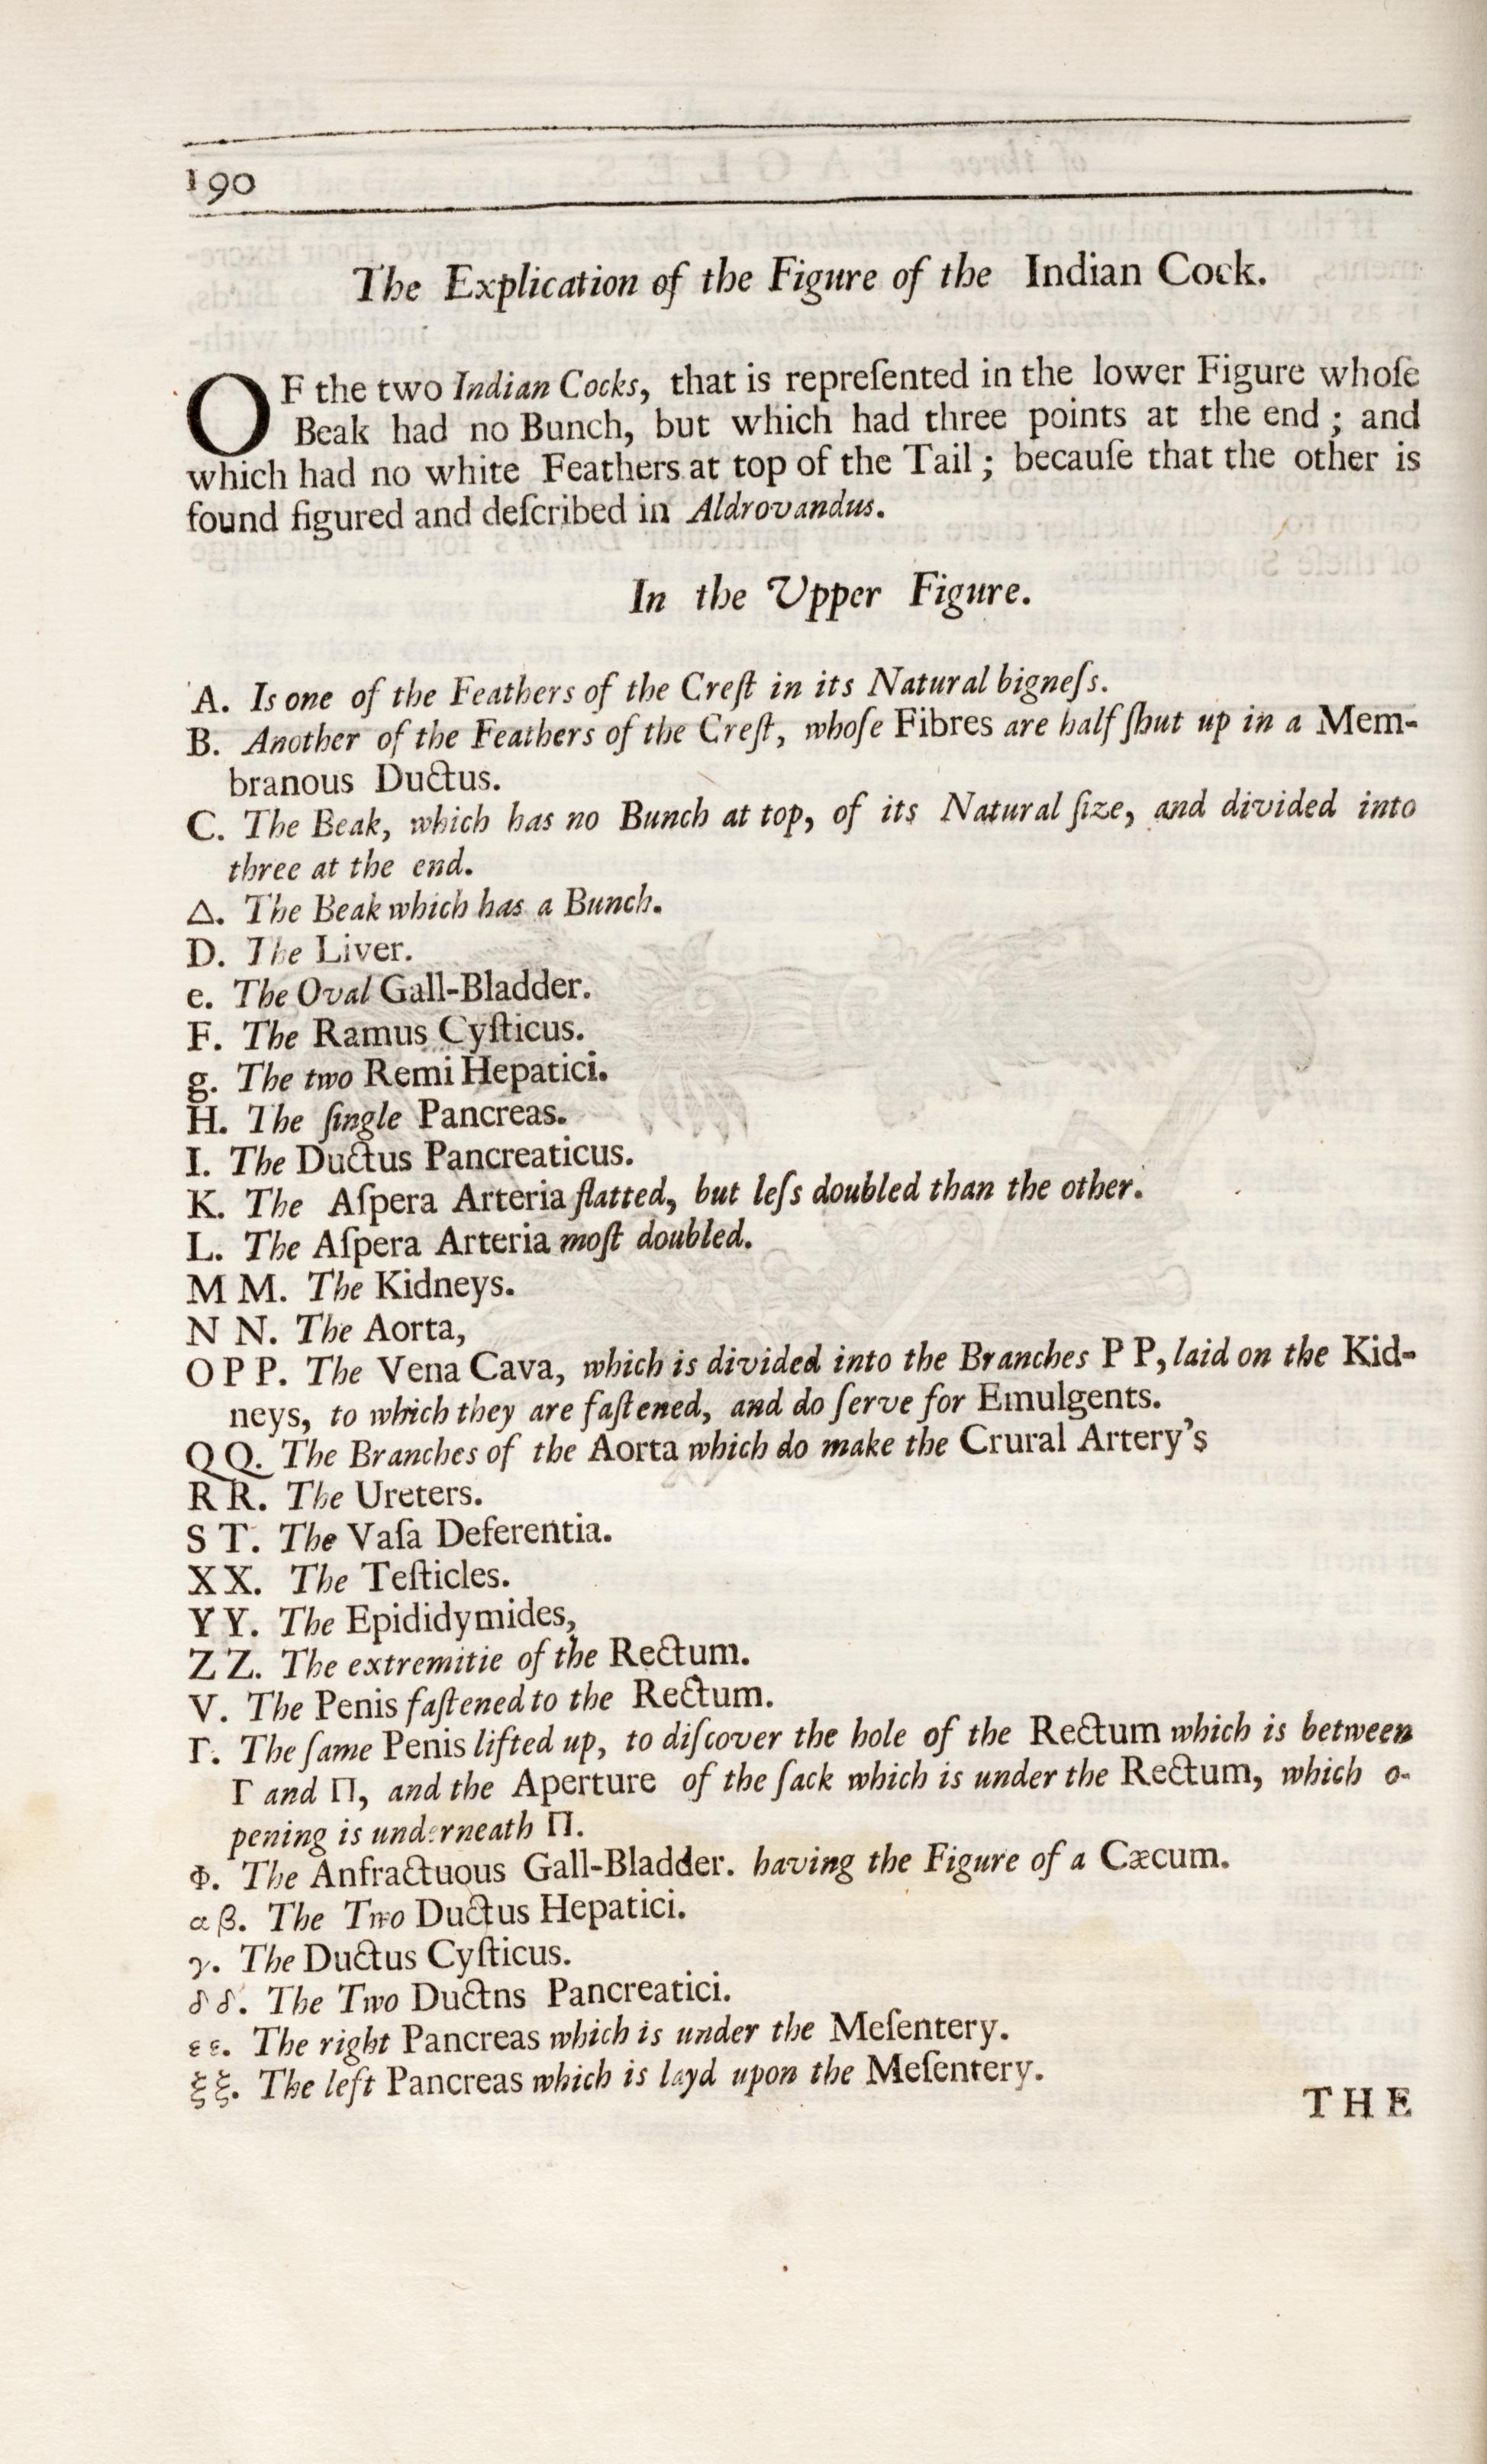 190
The Explication of the Figure of the Indian Cock.
OF the two Indian Cocks, that is repreſented in the lower Figure whoſe
Beak had no Bunch, but which had three points at the end ; and
which had no white Feathers at top of the Tail ; becauſe that the other is
found figured and deſcribed in Aldrovandus.
In the Upper Figure.
A. Is one of the Feathers of the Creſt in its Natural bigneſs.
B. Another of the Feathers of the Creſt, whoſe Fibres are half ſhut up in a Mem-
branous Ductus.
C. The Beak, which has no Bunch at top, of its Natural ſize, and divided into
three at the end.
Δ. The Beak which has a Bunch.
D. The Liver.
e. The Oval Gall-Bladder.
F. The Ramus Cyſticus.
g. The two Remi Hepatici.
H. The ſingle Pancreas.
I. The Ductus Pancreaticus.
K. The Aſpera Arteria flatted, but leſs doubled than the other.
L. The Aſpera Arteria moſt doubled.
M M. The Kidneys.
N N. The Aorta,
O P P. The Vena Cava, which is divided into the Branches P P, laid on the Kid-
neys, to which they are faſtened, and do ſerve for Emulgents.
Q Q. The Branches of the Aorta which do make the Crural Artery's
R R. The Ureters.
S T. The Vaſa Deferentia.
X X. The Teſticles.
Y Y. The Epididymides,
Z Z. The extremitie of the Rectum.
V. The Penis faſtened to the Rectum.
Γ. The ſame Penis lifted up, to diſcover the hole of the Rectum which is between
Γ and Π, and the Aperture of the ſack which is under the Rectum, which o-
pening is underneath Π.
Φ. The Anfractuous Gall-Bladder. having the Figure of a Cæcum.
α β. The Two Ductus Hepatici.
γ. The Ductus Cyſticus.
δ δ. The Two Ductns Pancreatici.
ε ε. The right Pancreas which is under the Meſentery.
ξ ξ. The left Pancreas which is layd upon the Meſentery.
THE